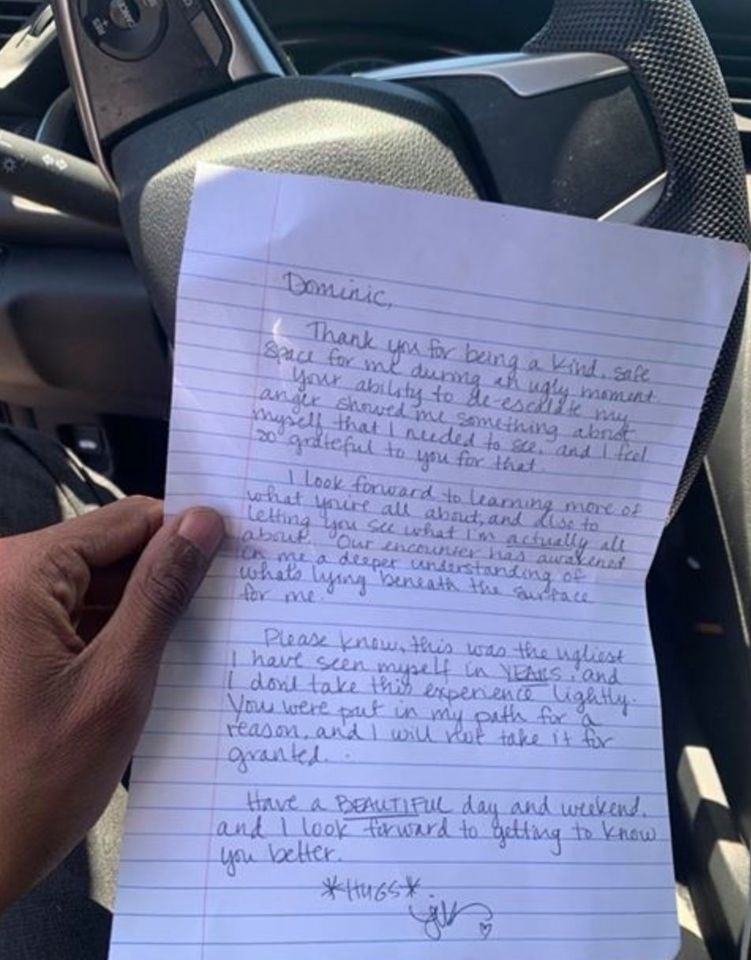 Dominic,
Thank you for being a kind, safe
space for me during an ugly moment.
Your ability to de-escalate my
anger showed me something about
myself that I needed to see, and I feel
so grateful to you for that.
I look forward to learning more of
what you're all about, and also to
letting you see what I'm actually all
about. Our encounter has awakened
in me a deeper understanding of
what's lying beneath the surface
for me.
Please know, this was the ugliest
I have seen myself in YEARS, and
I don't take this experience lightly.
You were put in my path for a
reason, and I will not take it for
granted.
Have a BEAUTIFUL day and weekend,
and I look forward to getting to know
you better.
*HUGS*